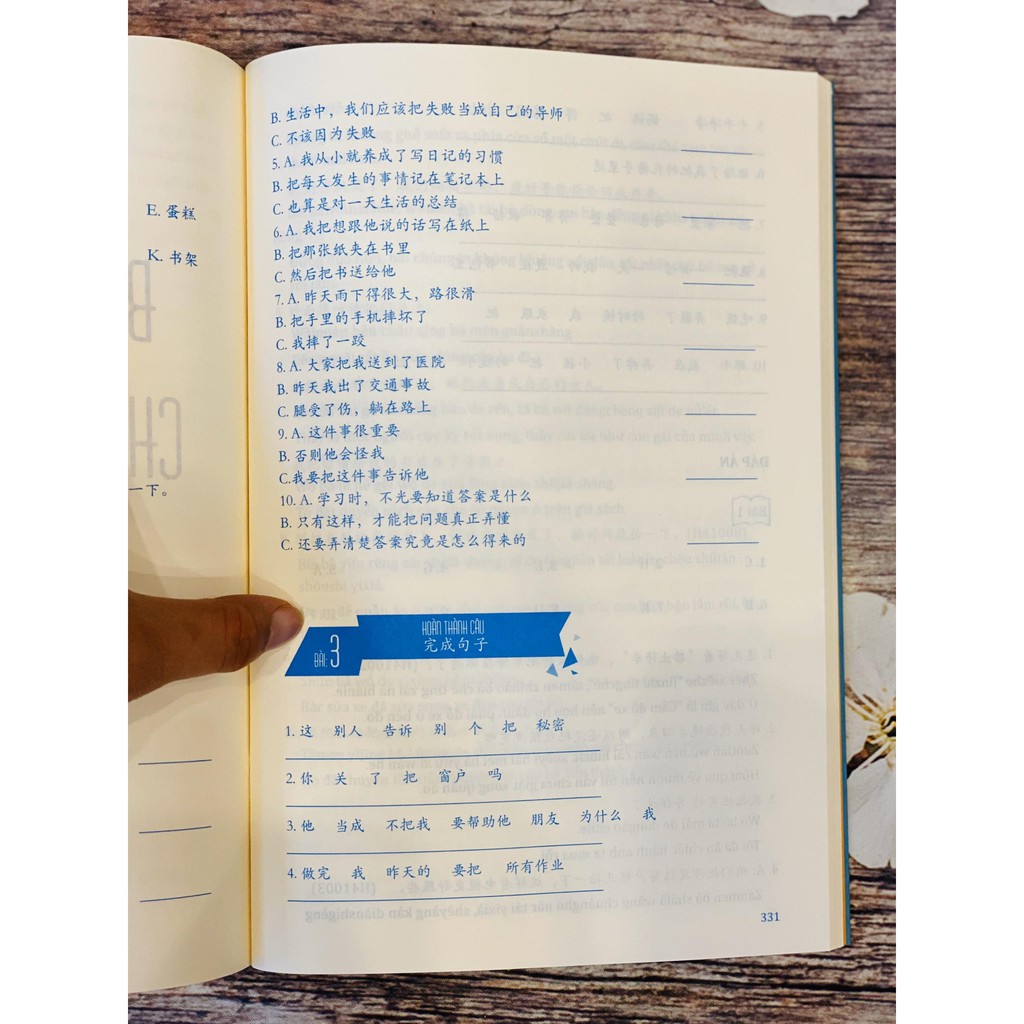 E. 蛋糕
K. 书架
一下。
B. 生活中，我们应该把失败当成自己的导师
C. 不该因为失败
5. A. 我从小就养成了写日记的习惯
B. 把每天发生的事情记在笔记本上
C. 也算是对一天生活的总结
6. A. 我把想跟他说的话写在纸上
B. 把那张纸夹在书里
C. 然后把书送给他
7. A. 昨天雨下得很大，路很滑
B. 把手里的手机摔坏了
C. 我摔了一跤
8. A. 大家把我送到了医院
B. 昨天我出了交通事故
C. 腿受了伤，躺在路上
9. A. 这件事很重要
B. 否则他会怪我
C.我要把这件事告诉他
10. A. 学习时，不光要知道答案是什么
B. 只有这样，才能把问题真正弄懂
C. 还要弄清楚答案究竟是怎么得来的
BÀI: 3
HOÀN THÀNH CÂU
完成句子
1. 这 别人 告诉 别 个 把 秘密
2. 你 关 了 把 窗户 吗
3. 他 当成 不把我 要帮助他 朋友 为什么 我
4. 做完 我 昨天的 要把 所有作业
331